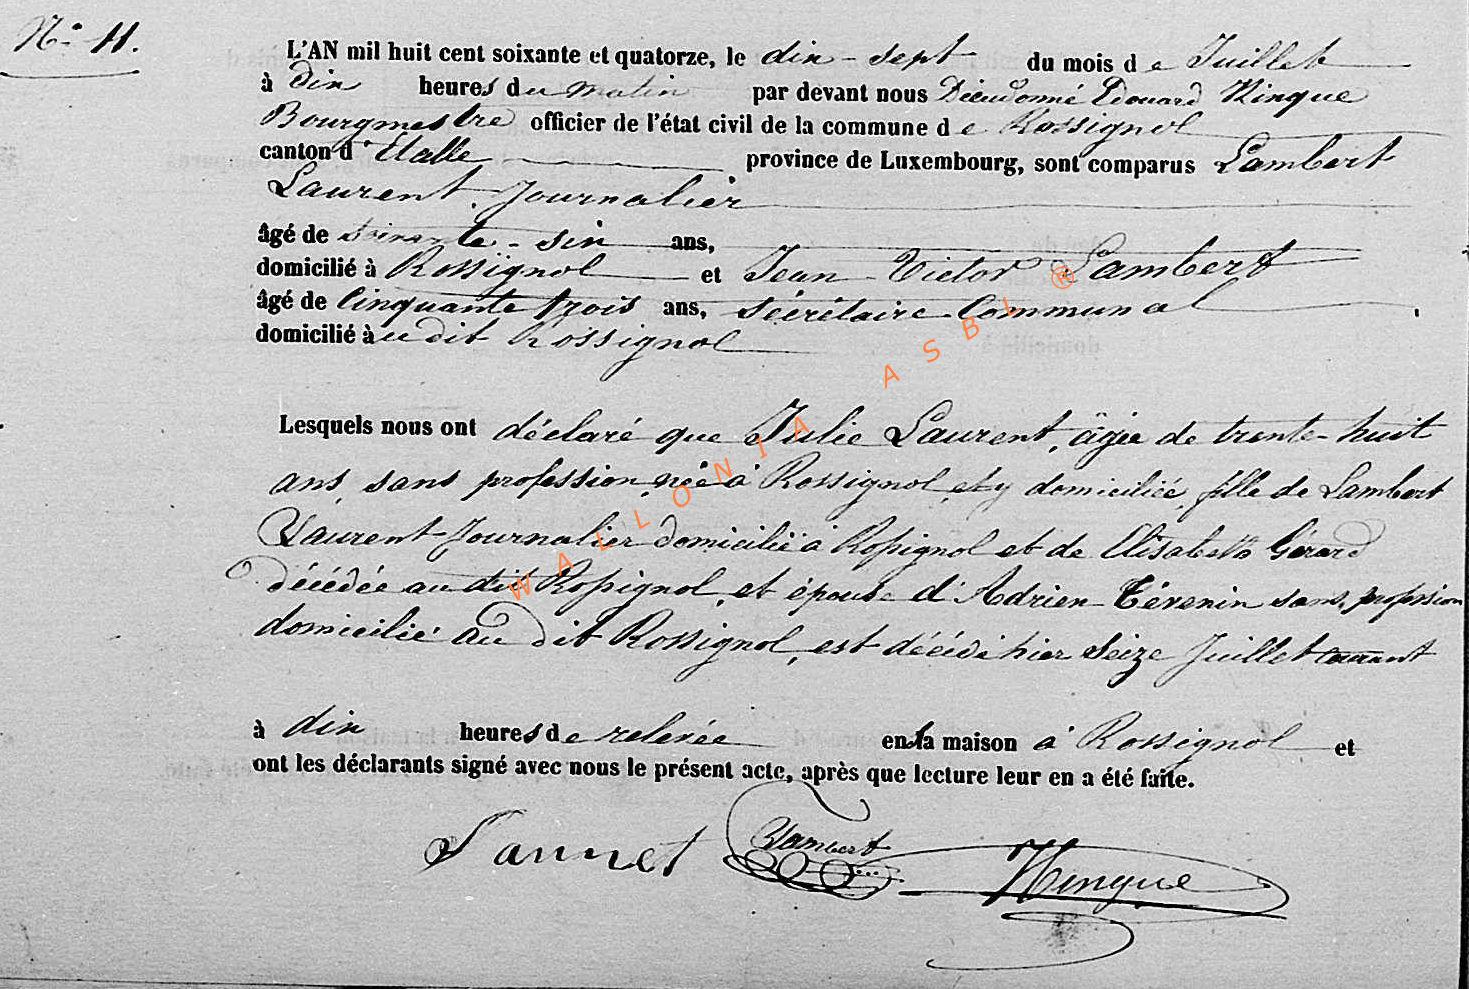 N.° 11.
L'AN mil huit cent soixante et quatorze, le dix-sept du mois de Juillet
à dix heures du matin par devant nous Dieudonné Edouard Hinque
Bourgmestre officier de l'état civil de la commune de Rossignol
canton d'Etalle province de Luxembourg, sont comparus Lambert
Laurent, Journalier
âgé de soixante-six ans,
domicilié à Rossignol et Jean Victor Lambert
âgé de Cinquante trois ans, Sécrétaire Communal
domicilié audit Rossignol
Lesquels nous ont déclaré que Julie Laurent, âgée de trente-huit
ans, sans profession, née à Rossignol et y domiciliée, fille de Lambert
Laurent Journalier domicilié à Rossignol et de Elisabeth Gérard
décédée au dit Rossignol, et épouse d'Adrien Tévenin sans profession
domicilié au dit Rossignol, est décédé hier Seize Juillet courant
à dix heures de relevée en sa maison à Rossignol et
ont les déclarants signé avec nous le présent acte, après que lecture leur en a été faite.
Lambert
Hinque
WALLONIA ASBL ®